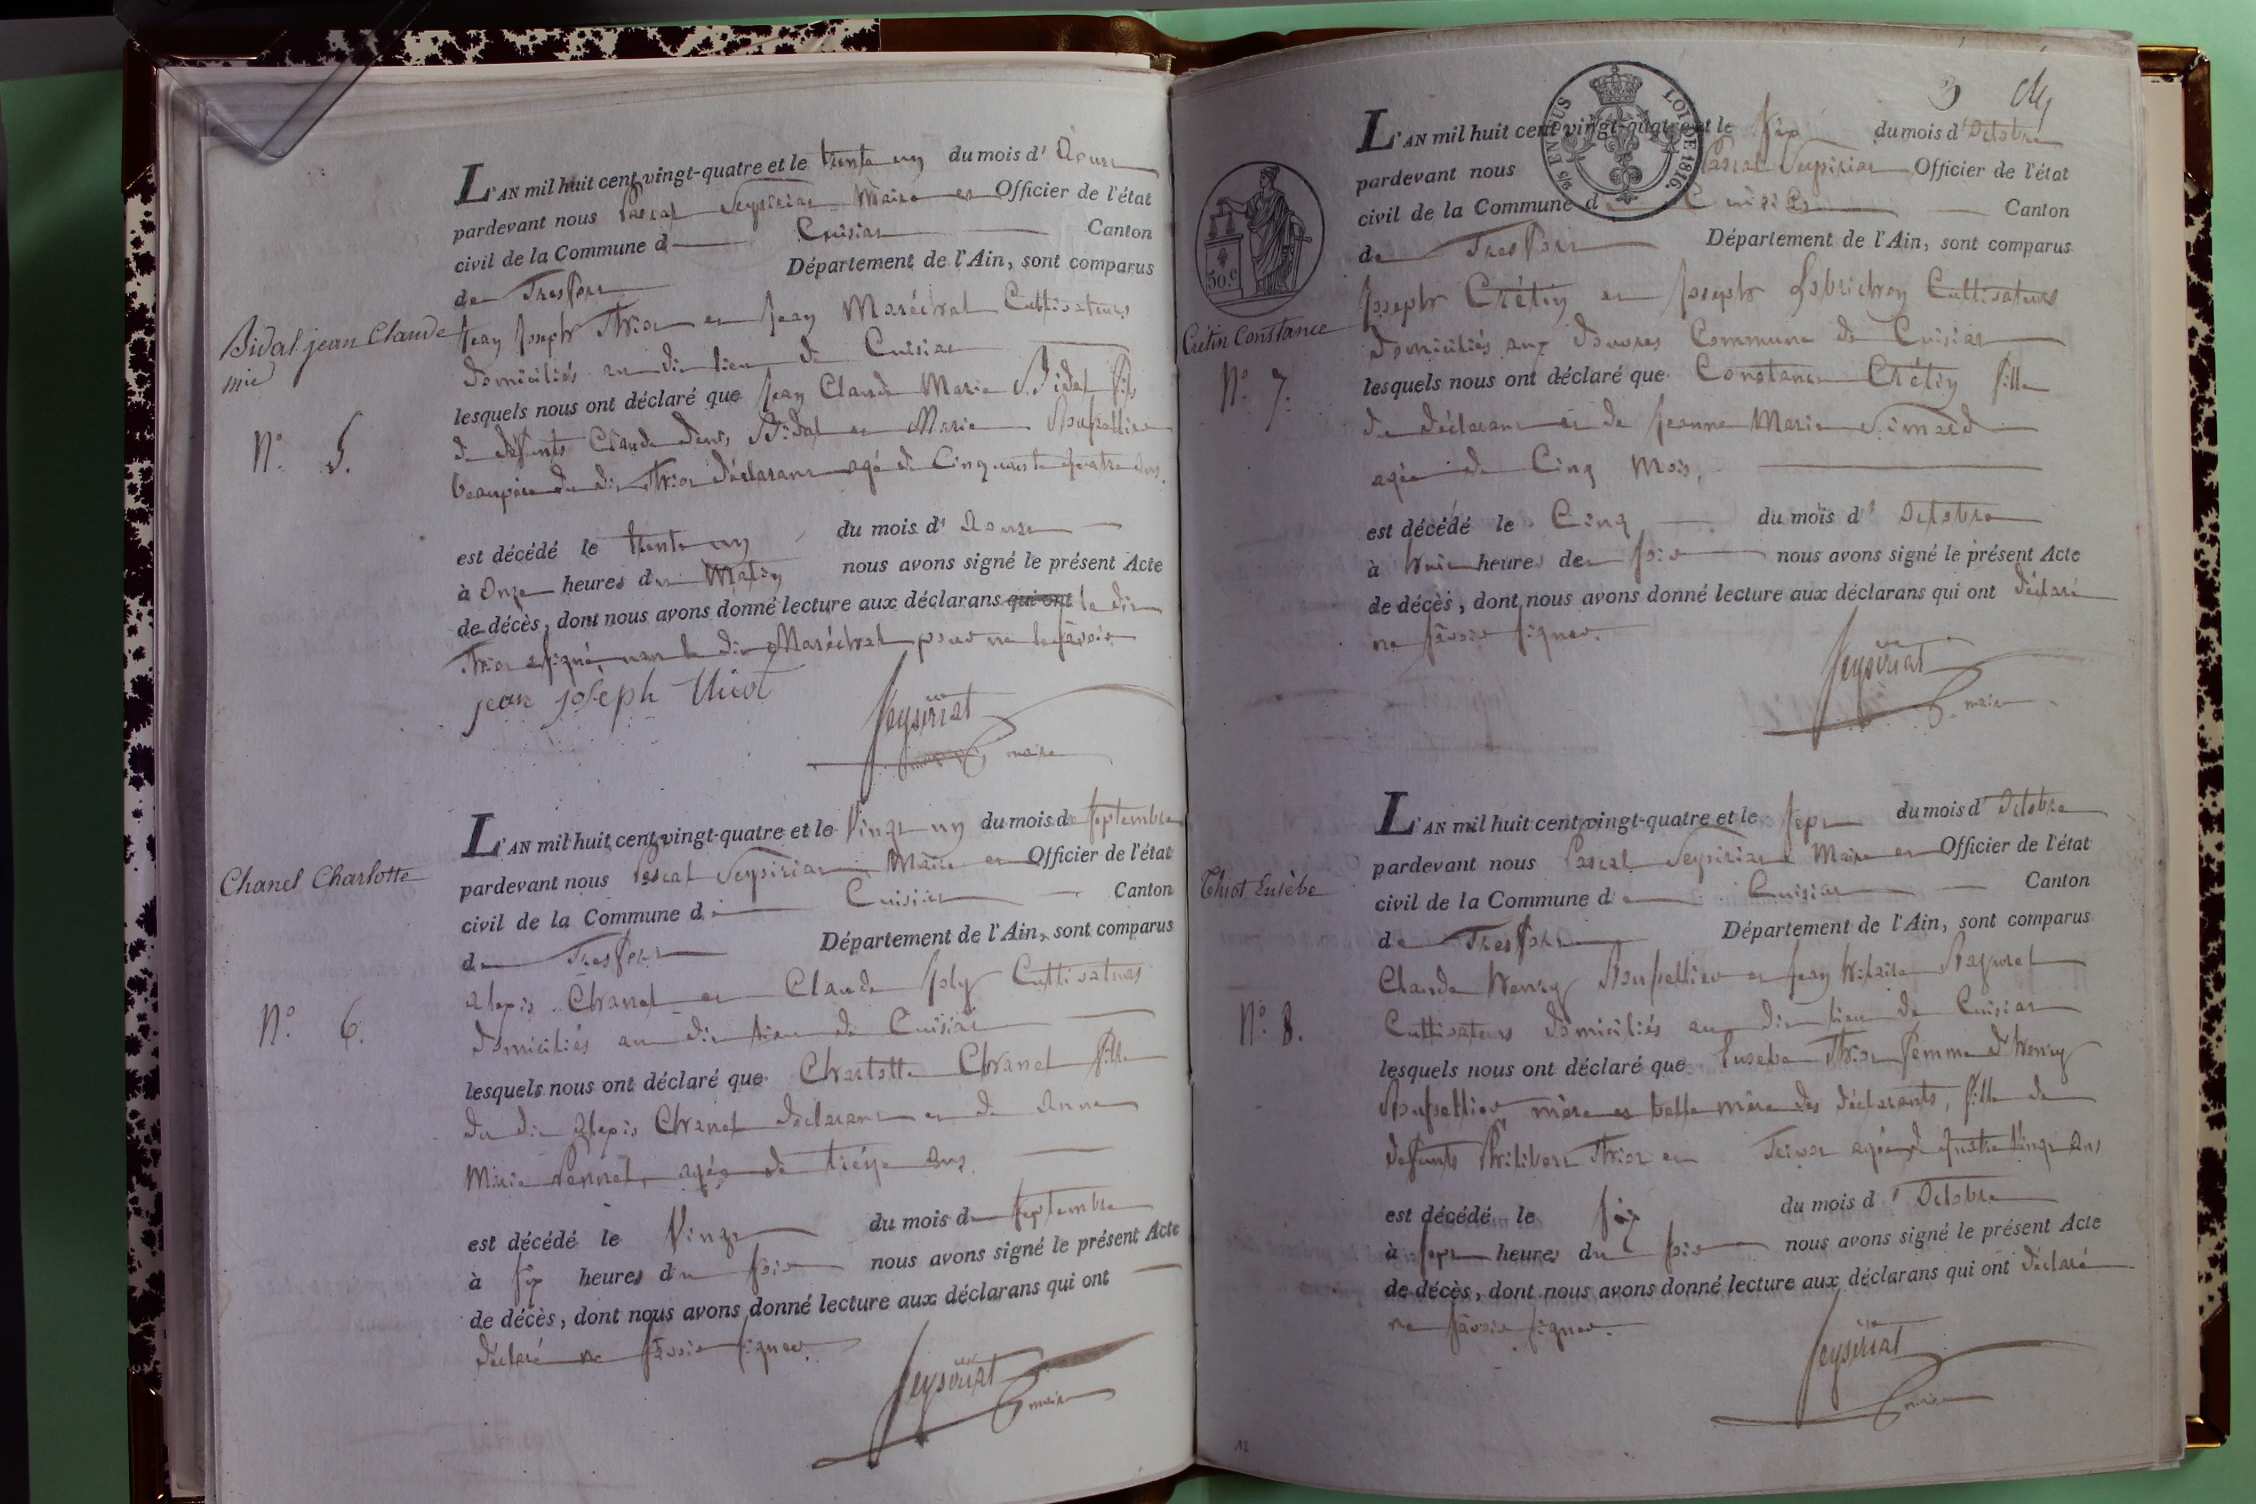 L'AN mil huit cent vingt-quatre et le trente un du mois d'Aoust
pardevant nous Pascal Seysiriat Maire et Officier de l'état
civil de la Commune de Cuisiat Canton
de Tresfort Département de l'Ain, sont comparus
Jean Joseph Thiot et Jean Maréchal Cultivateurs
domiciliés au dit lieu de Cuisiat
lesquels nous ont déclaré que Jean Claude Marie Bidal fils
de défunts Claude Denis Bidal et Marie
beaupère du dit Thiot déclarant agé de Cinquante quatre ans.
est décédé le trente un du mois d'Aoust
à Onze heures du Matin nous avons signé le présent Acte
de décès, dont nous avons donné lecture aux déclarans qui ont le dit
Thiot a signé, non le dit Maréchal pour ne le savoir.
jean joseph thiot
Seysiriat
maire
Bidal jean Claude
mie
N.° 5.
L'AN mil huit cent vingt-quatre et le Vingt un du mois de septembre
pardevant nous Pascal Seysiriat Maire et Officier de l'état
civil de la Commune de Cuisiat Canton
de Tresfort Département de l'Ain, sont comparus
Alexis Chanel et Claude Joly Cultivateurs
domiciliés au dit lieu de Cuisiat
lesquels nous ont déclaré que Charlotte Chanel fille
du dit Alexis Chanel déclarant et de Anne
Marie agée de treize ans
est décédé le Vingt du mois de septembre
à six heures du soir nous avons signé le présent Acte
de décès, dont nous avons donné lecture aux déclarans qui ont
déclaré ne savoir signer.
Seysiriat
maire
Chanel Charlotte
N.° 6.
3
EN SUS
LOI DE 1816.
50.c
L'AN mil huit cent vingt-quatre et le six du mois d'Octobre
pardevant nous Pascal Seysiriat Officier de l'état
civil de la Commune de Cuisiat Canton
de Tresfort Département de l'Ain, sont comparus
Joseph Crétin et Joseph Cultivateurs
domiciliés aux Commune de Cuisiat
lesquels nous ont déclaré que Constance Crétin fille
du déclarant et de Jeanne Marie
agée de Cinq Mois,
est décédé le Cinq du mois d'Octobre
à huit heures de soir nous avons signé le présent Acte
de décès, dont nous avons donné lecture aux déclarans qui ont déclaré
ne savoir signer.
Seysiriat
maire
Crétin Constance
N.° 7.
L'AN mil huit cent vingt-quatre et le sept du mois d'Octobre
pardevant nous Pascal Seysiriat Maire et Officier de l'état
civil de la Commune de Cuisiat Canton
de Tresfort Département de l'Ain, sont comparus
Claude Henry et Jean hilaire
Cultivateurs domiciliés au dit lieu de Cuisiat
lesquels nous ont déclaré que Eusebe Thiot femme d'henry
mère et belle mère des déclarants, fille de
defunts Philibert Thiot et agée de quatre Vingt ans
est décédé le six du mois d'Octobre
à sept heures du soir nous avons signé le présent Acte
de décès, dont nous avons donné lecture aux déclarans qui ont déclaré
ne savoir signer.
Seysiriat
maire
Thiot Eusèbe
N.° 8.
12